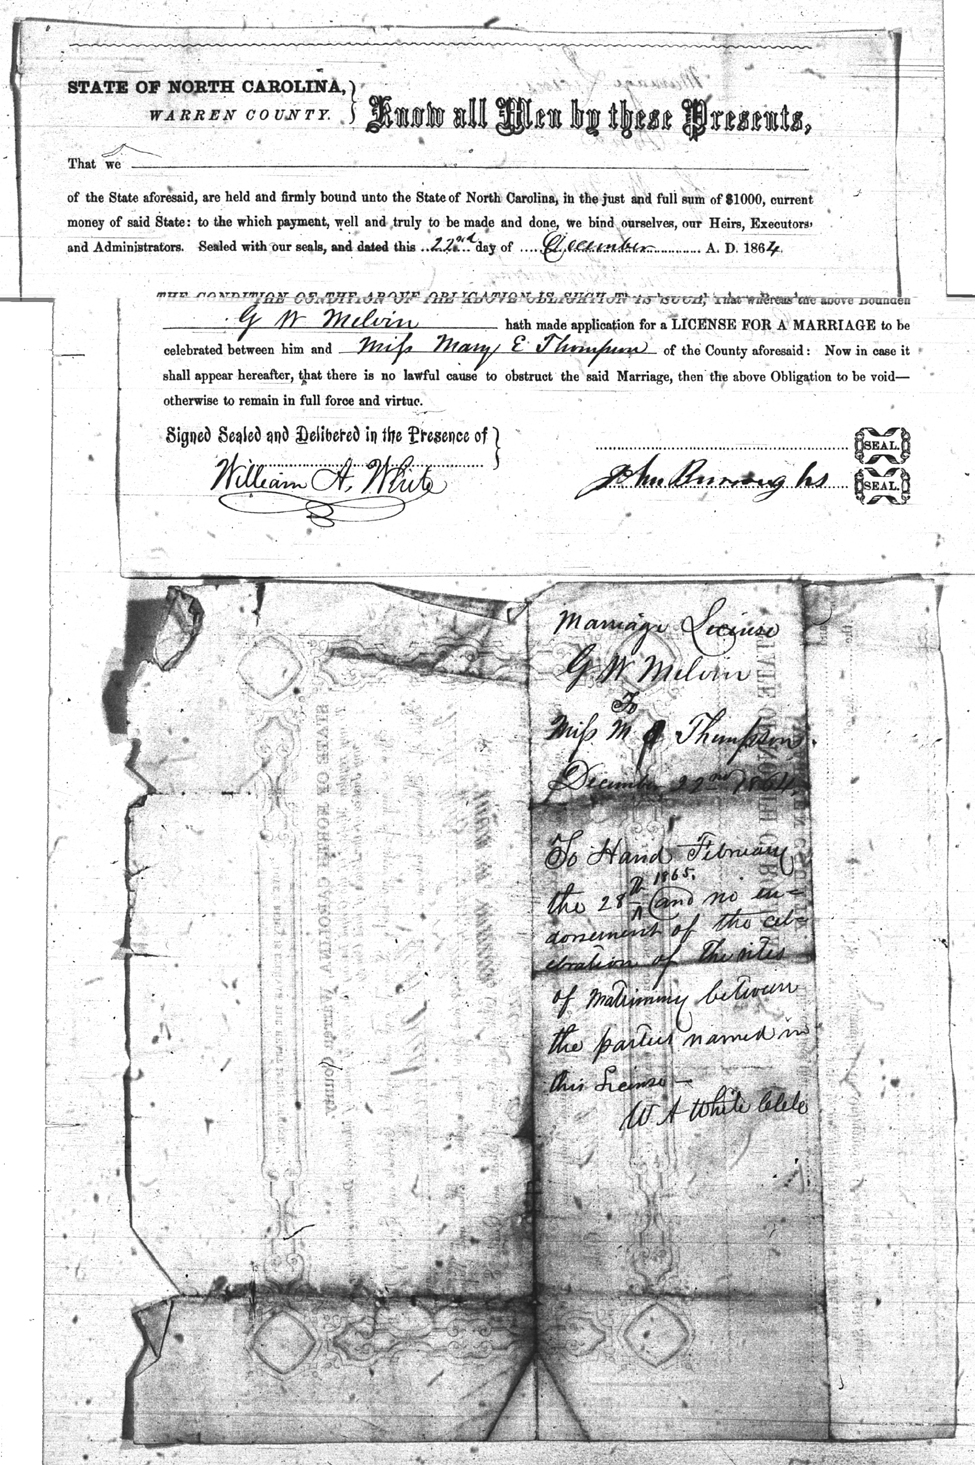 STATE OF NORTH CAROLINA,
WARREN COUNTY.
Know all Men by these Presents,
That we
of the State aforesaid, are held and firmly bound unto the State of North Carolina, in the just and full sum of $1000, current
money of said State: to the which payment, well and truly to be made and done, we bind ourselves, our Heirs, Executors
and Administrators. Sealed with our seals, and dated this 22nd day of December A. D. 1864.
THE CONDITION OF THE ABOVE OBLIGATION IS SUCH, That whereas the above bounden
G W Melvin hath made application for a LICENSE FOR A MARRIAGE to be
celebrated between him and Miss Mary E Thompson of the County aforesaid: Now in case it
shall appear hereafter, that there is no lawful cause to obstruct the said Marriage, then the above Obligation to be void—
otherwise to remain in full force and virtue.
Signed Sealed and Delibered in the Presence of
SEAL.
William A. White
John Burroughs
SEAL.
Marriage License
G W Melvin
To
Miss M Thompson.
December 22nd 1864
To Hand February
the 28th 1865. and no en-
dorsement of the cel-
ebration of the rites
of matrimony between
the parties named in
this License —
W A White Clk